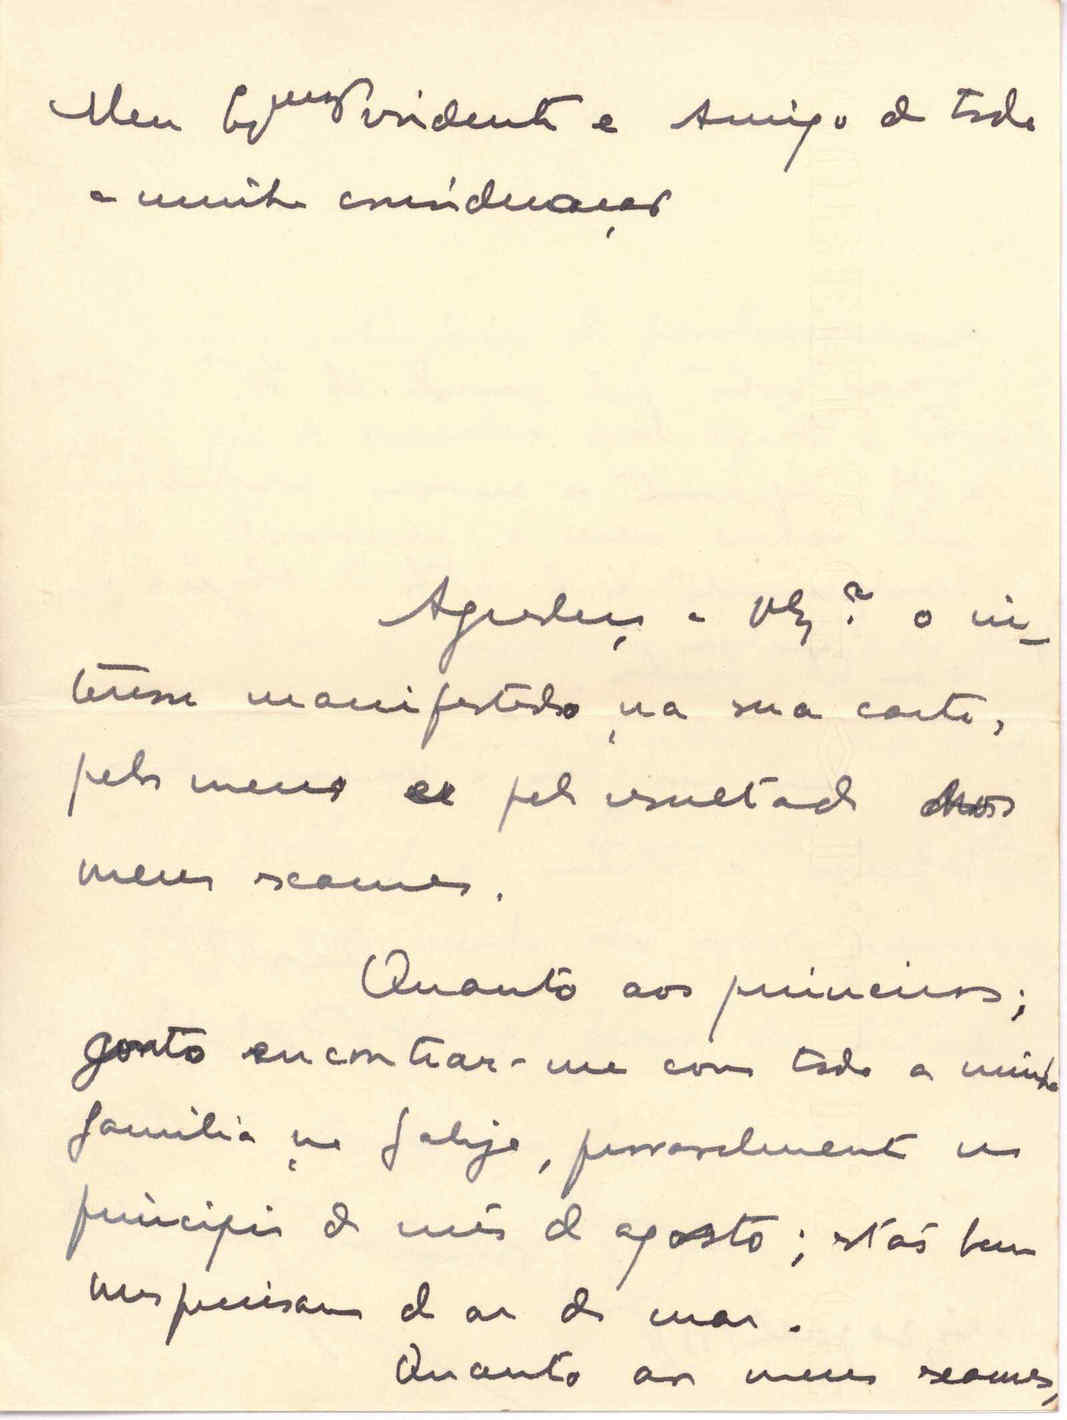 Meu Exmo Presidente e Amigo de toda
a minha consideração
Agradeço a V. Ex.ª o in-
teresse manifestado na sua carta,
pelos meus e pelo resultado dos
meus exames.
Quanto aos primeiros;
conto encontrar-me com toda a minha
familia na Galiza, provavelmente no
principio do mês de agosto; estás bem
nus precisam de ar do mar.
Quanto aos meus exames,